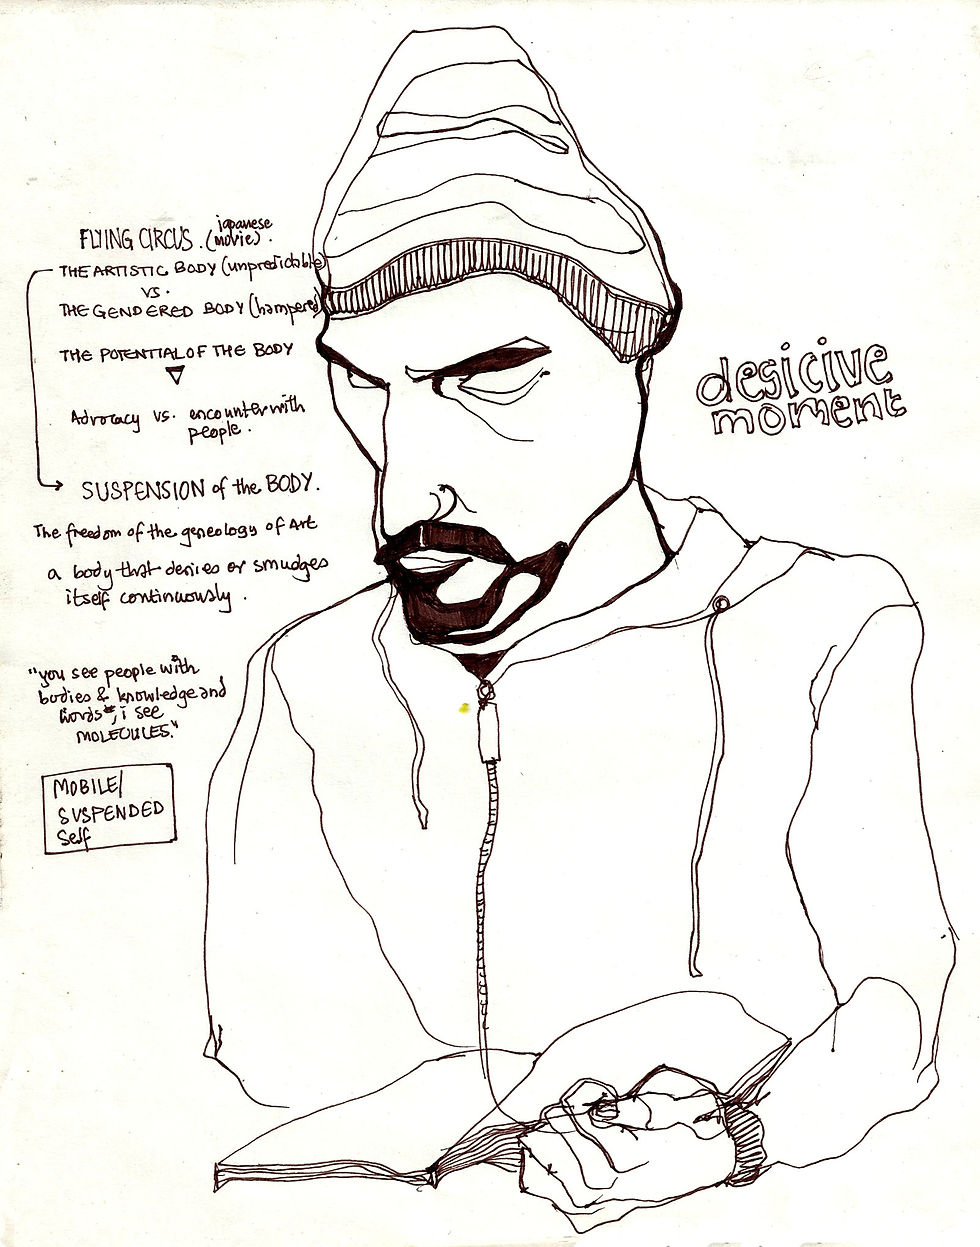 FLYING CIRCUS. (japanese movie).
THE ARTISTIC BODY (unpredictable)
VS.
THE GENDERED BODY (hampered)
THE POTENTIAL OF THE BODY
Advocacy vs. encounter with
people.
SUSPENSION of the BODY.
The freedom of the geneology of Art
a body that denies or smudges
itself continuously.
"you see people with
bodies & knowledge and
words", i see
MOLECULES."
MOBILE/
SUSPENDED
Self
desicive
moment